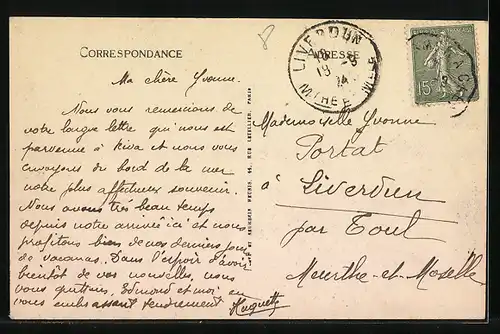 CORRESPONDANCE
ADRESSE
LIVERDUN
19 -8
24
MTHE
15c
Ma chère Yvonne.
Nous vous remercions de
votre longue lettre qui nous est
parvenue à et nous vous
envoyons du bord de la mer
notre plus affectueux souvenir.
Nous avons très beau temps
depuis notre arrivée ici et nous
profitons bien de nos derniers jours
de vacances. Dans l'espoir d'avoir
bientôt de vos nouvelles, nous
vous quittons, Edmond et moi en
vous embrassant tendrement
Huguette
Mademoiselle Yvonne
Portat
à Liverdun
par Toul
Meurthe-et-Moselle